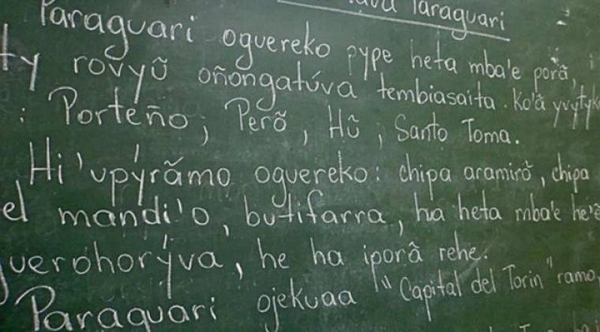 Paraguari
Paraguari oguereko pype heta mba'e porã,
ty rovyũ oñongatúva tembiasaita. Ko'ã yvytyk
: Porteño, Perõ, Hũ, Santo Toma.
Hi'upyrãmo oguereko: chipa aramirõ, chipa
el mandi'o, butifarra, ha heta mba'e he'ẽ
guerohorýva, he ha iporã rehe.
Paraguari ojekuaa "Capital del Torin" ramo,